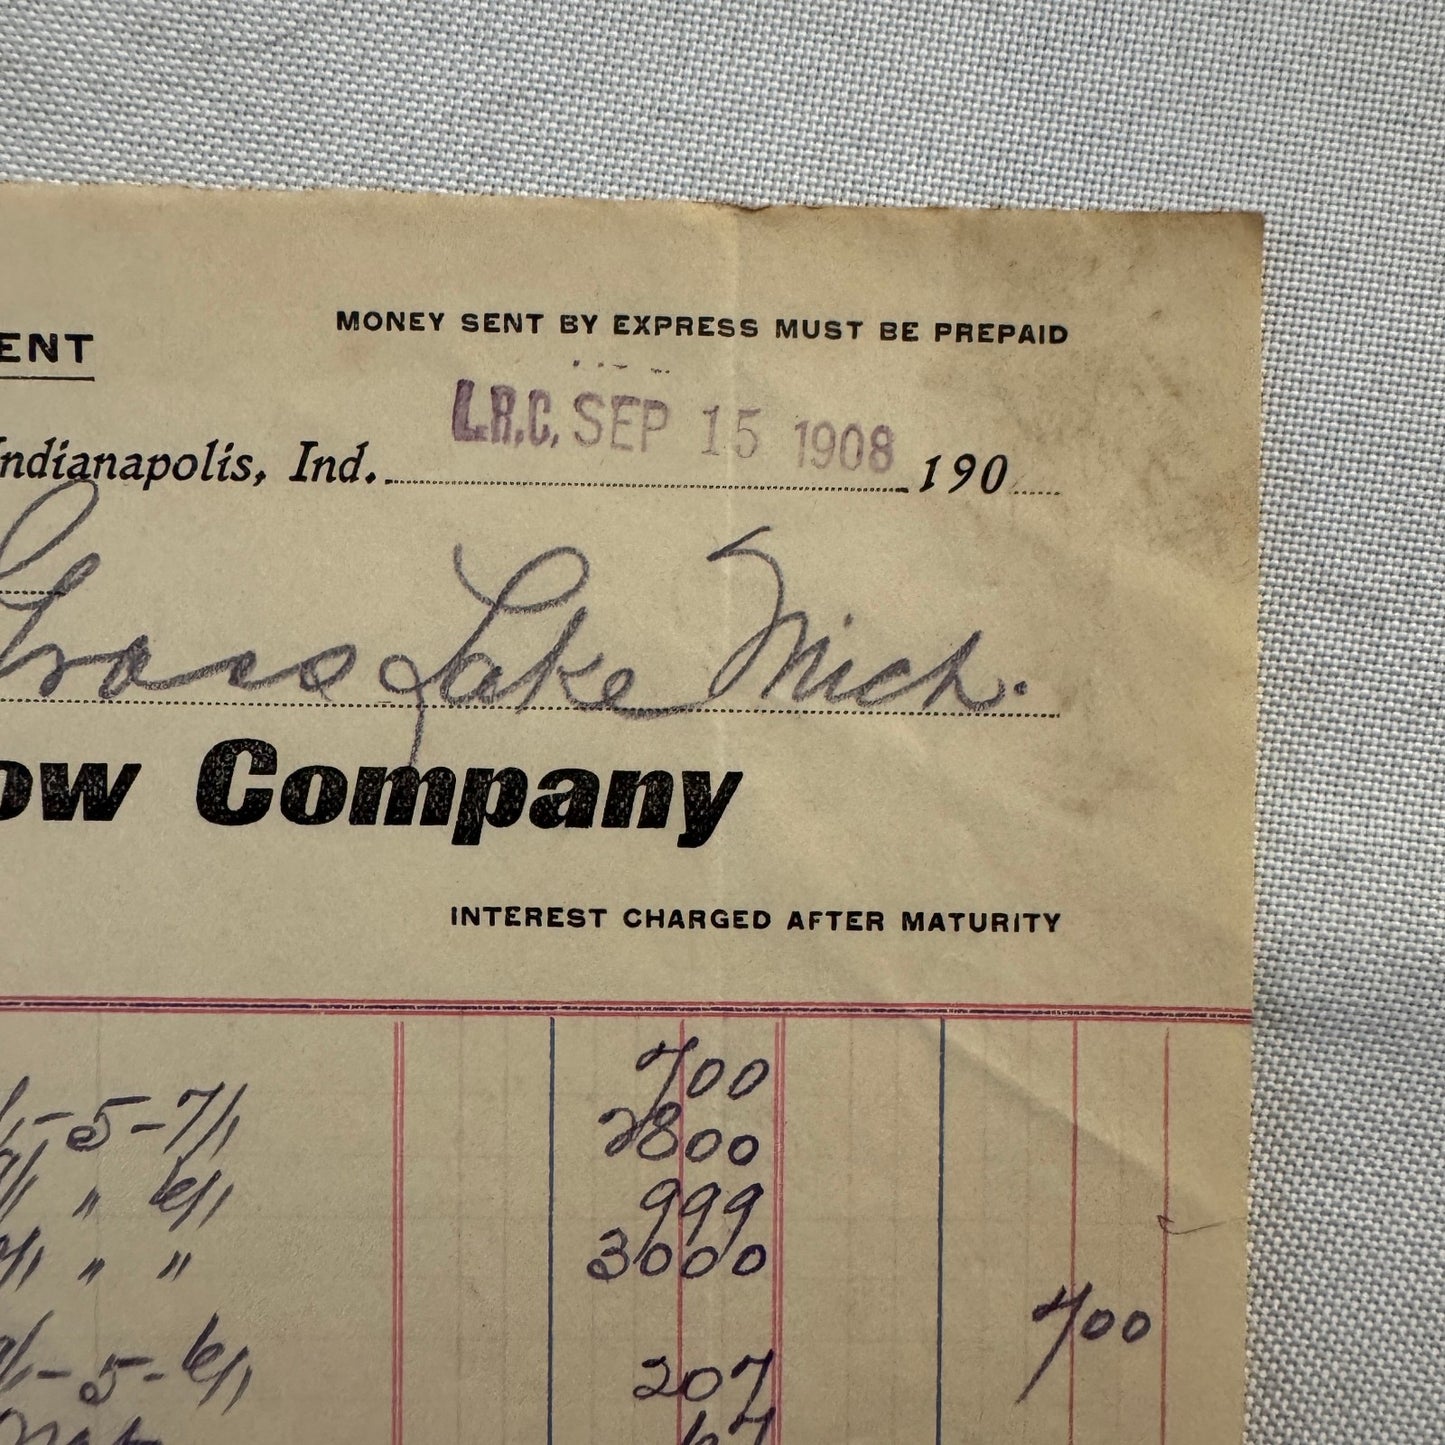 ENT
MONEY SENT BY EXPRESS MUST BE PREPAID
L.R.C. SEP 15 1908
Indianapolis, Ind. 190
Grass Lake Mich.
ow Company
INTEREST CHARGED AFTER MATURITY
700
5-7/1
2800
" 6/1
999
" "
3000
700
5-6/1
207
67